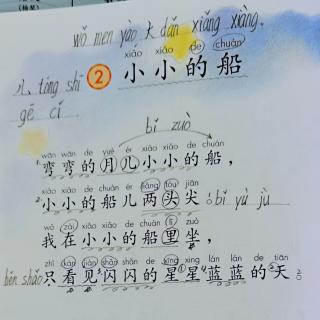 wǒ men yào dà dǎn xiǎng xiàng.
xiǎo xiǎo de chuán
儿 tóng shī ② 小小的船
gē cí
bǐ zuò
wān wān de yuè ér xiǎo xiǎo de chuán
1. 弯弯的月儿小小的船，
xiǎo xiǎo de chuán ér liǎng tóu jiān
2. 小小的船儿两头尖。bǐ yù jù
wǒ zài xiǎo xiǎo de chuán lǐ zuò
我在小小的船里坐，
zhǐ kàn jiàn shǎn shǎn de xīng xing lán lán de tiān
běn shǎo 只看见闪闪的星星蓝蓝的天。